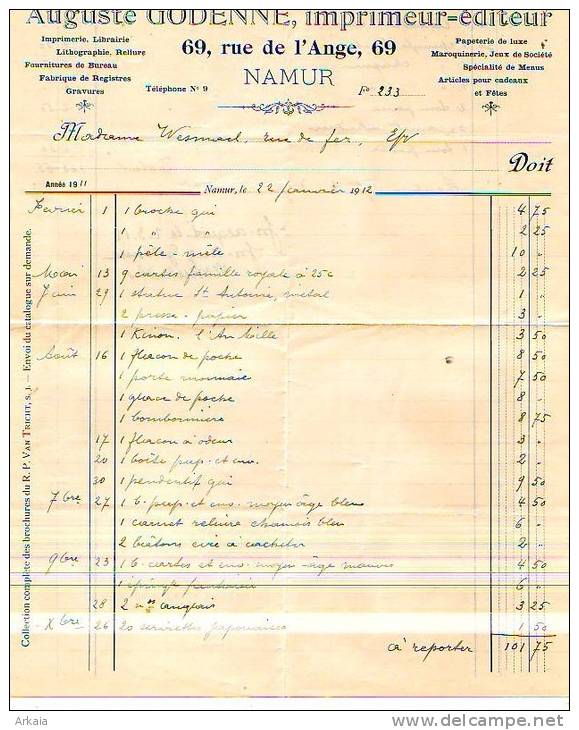 Auguste GODENNE, imprimeur=éditeur
Imprimerie, Librairie
Lithographie, Reliure
Fournitures de Bureau
Fabrique de Registres
Gravures
69, rue de l'Ange, 69
NAMUR
Téléphone N° 9
Fo 233
Papeterie de luxe
Maroquinerie, Jeux de Société
Spécialité de Menus
Articles pour cadeaux
et Fêtes
Madame Wesmael, rue de fer, E/V
Doit
Année 1911
Namur, le 22 janvier 1912
Collection complète des brochures du R. P. VAN TRICHT, S. J. — Envoi du catalogue sur demande.
Février 1 1 broche gui 4 75
1 " " 2 25
1 pêle-mêle 10 "
Mai 13 9 cartes famille royale à 25c 2 25
Juin 29 1 statue St Antoine, métal 1 "
2 presse-papier 3 "
1 l'An 3 50
Août 16 1 flacon de poche 8 50
1 porte monnaie 7 50
1 glace de poche 8 "
1 bombonnière 8 75
17 1 flacon à odeur 3 "
20 1 boîte pap. et env. 2 "
30 1 pendentif gui 9 50
7bre 27 1 b. pap. et env. moyen âge bleu 4 50
1 carnet reliure chamois bleu 6 "
2 bâtons cire à cacheter 2 "
9bre 23 1 b. cartes et env. moyen-âge mauves 4 50
1 épingle fantaisie 6 "
28 2 anglais 3 25
Xbre 26 20 serviettes japonaises 1 50
à reporter 101 75
Arkaia
delcampe.net